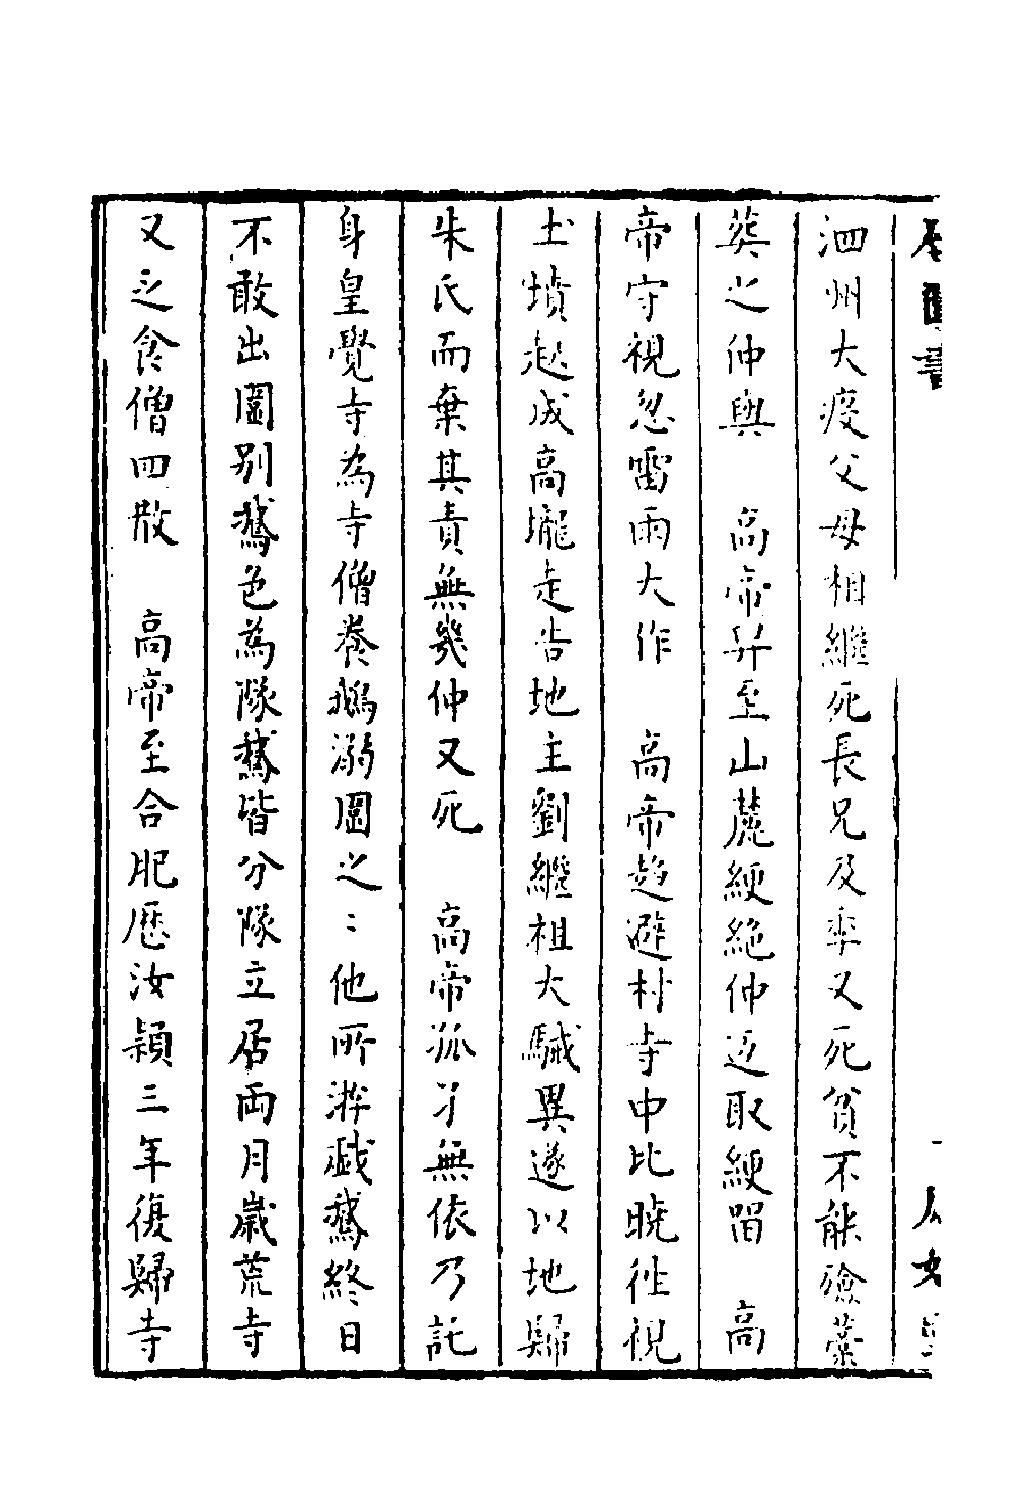 泗州大疫父母相繼死長兄及季又死貧不能殮藁
葬之仲與　高帝舁至山麓綆絕仲返取綆留　高
帝守視忽雷雨大作　高帝趋避村寺中比曉往視
土墳起成高壠走告地主劉繼祖大駴異遂以地歸
朱氏而棄其責無幾仲又死　高帝孤孑無依乃託
身皇覺寺為寺僧養鵝溺圖之〻他所游戲鵞終日
不敢出圖别鵞色為隊鵞皆分隊立居両月歲荒寺
又乏食僧四散　高帝至合肥歷汝潁三年復歸寺